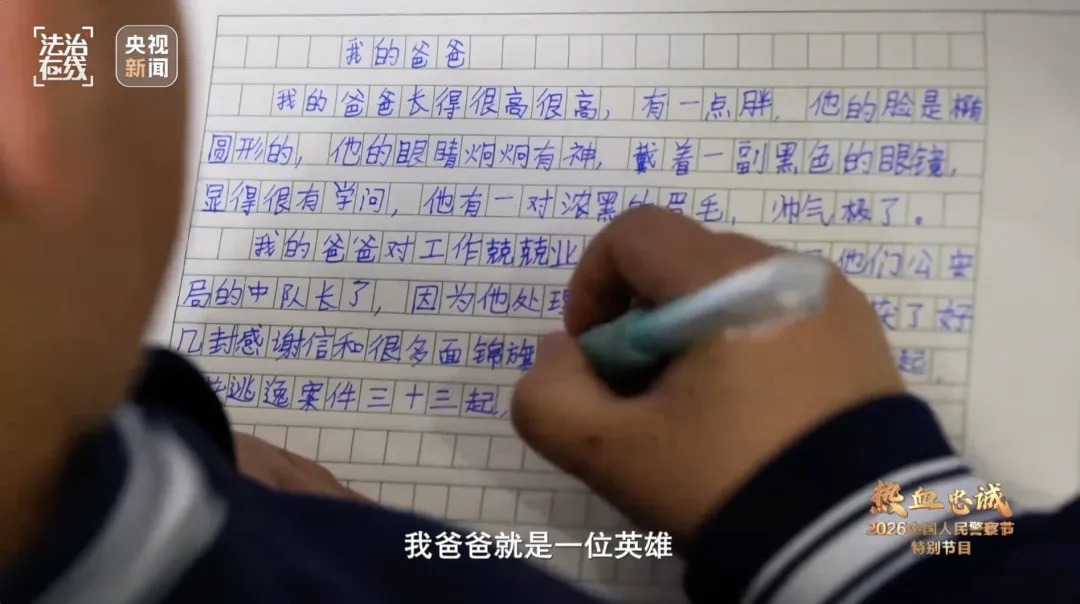 法治
在线
央视
新闻
我的爸爸
我的爸爸长得很高很高，有一点胖，他的脸是椭
圆形的，他的眼睛炯炯有神，戴着一副黑色的眼镜，
显得很有学问，他有一对浓黑的眉毛，帅气极了。
我的爸爸对工作兢兢业 他们公安
局的中队长了，因为他处理 获了好
几封感谢信和很多面锦旗 起，
逃逸案件三十三起，
热血忠诚
2026中国人民警察节
特别节目
我爸爸就是一位英雄